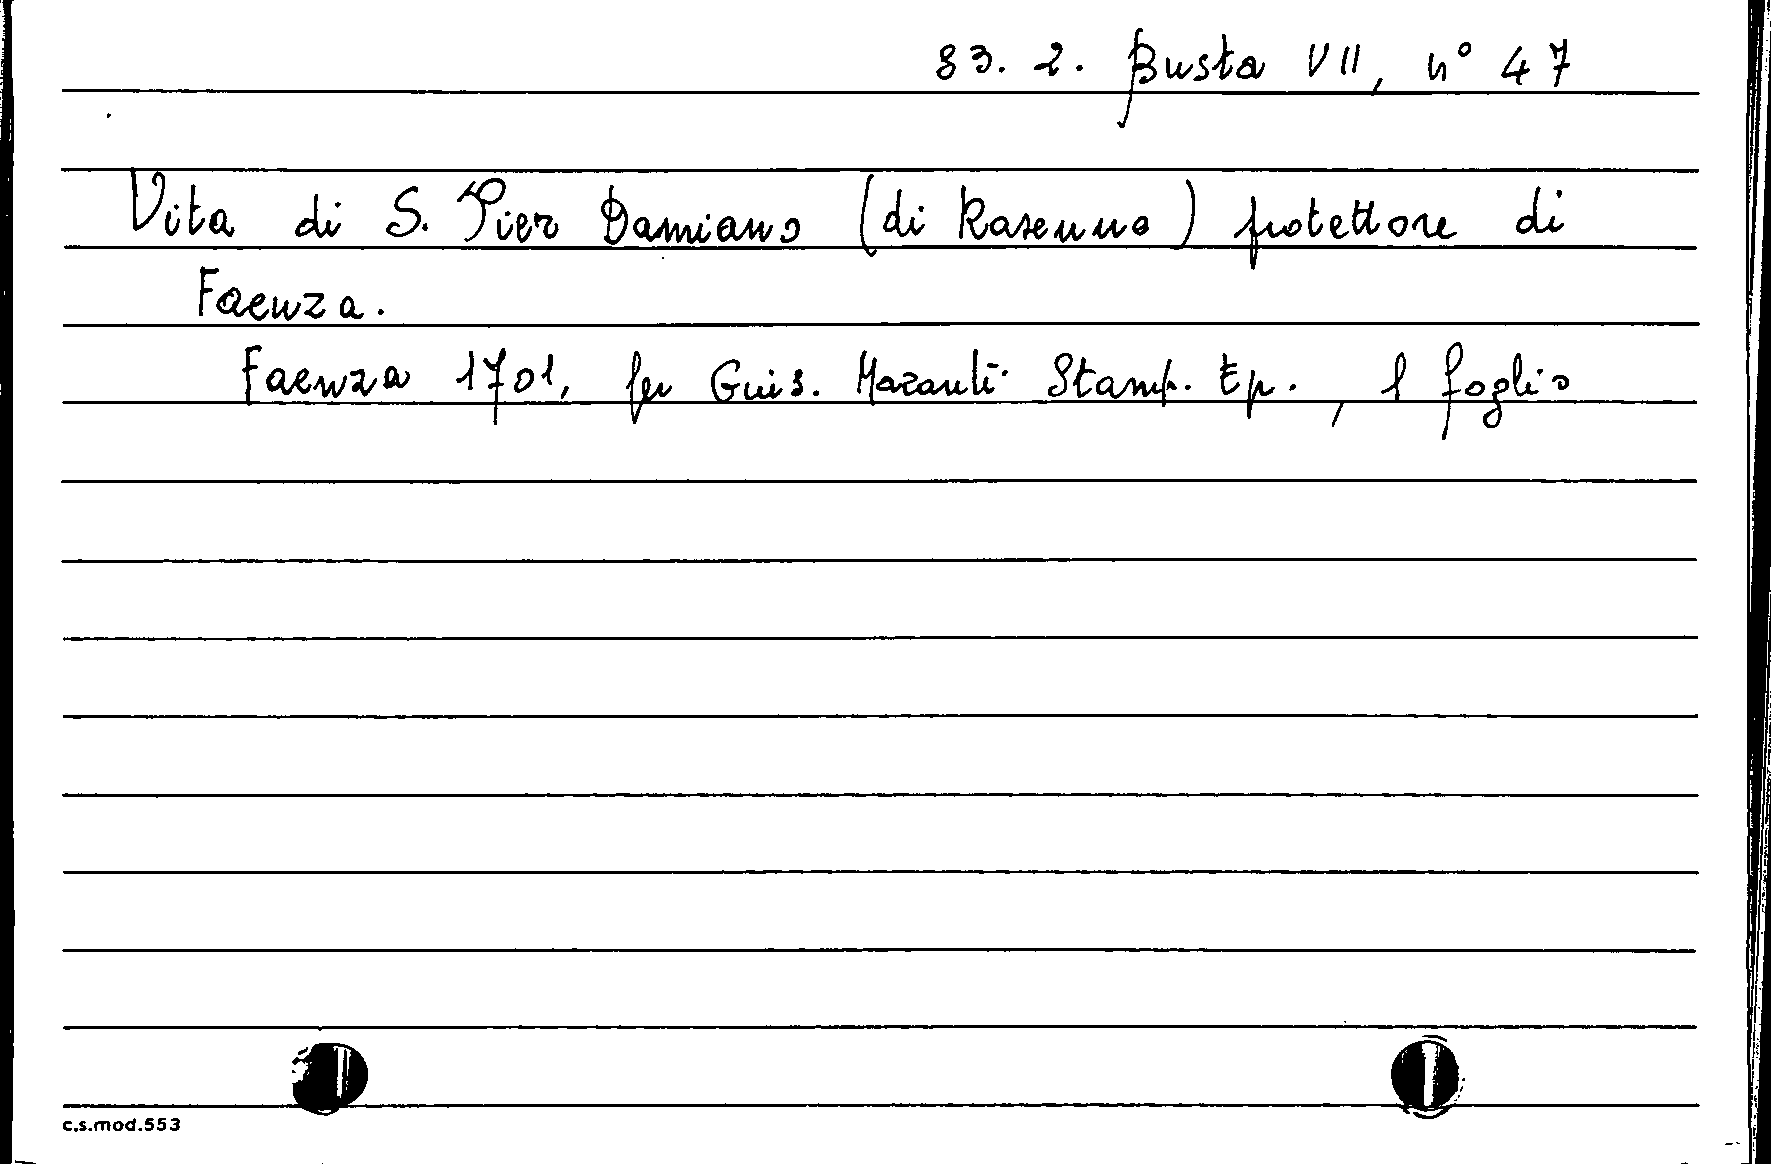 83. 2. Busta VII, n° 47
Vita di S. Pier Damiano (di Ravenna) protettore di
Faenza.
Faenza 1701, per Gius. Maranti Stamp. Ep., 1 foglio
c.s.mod.553